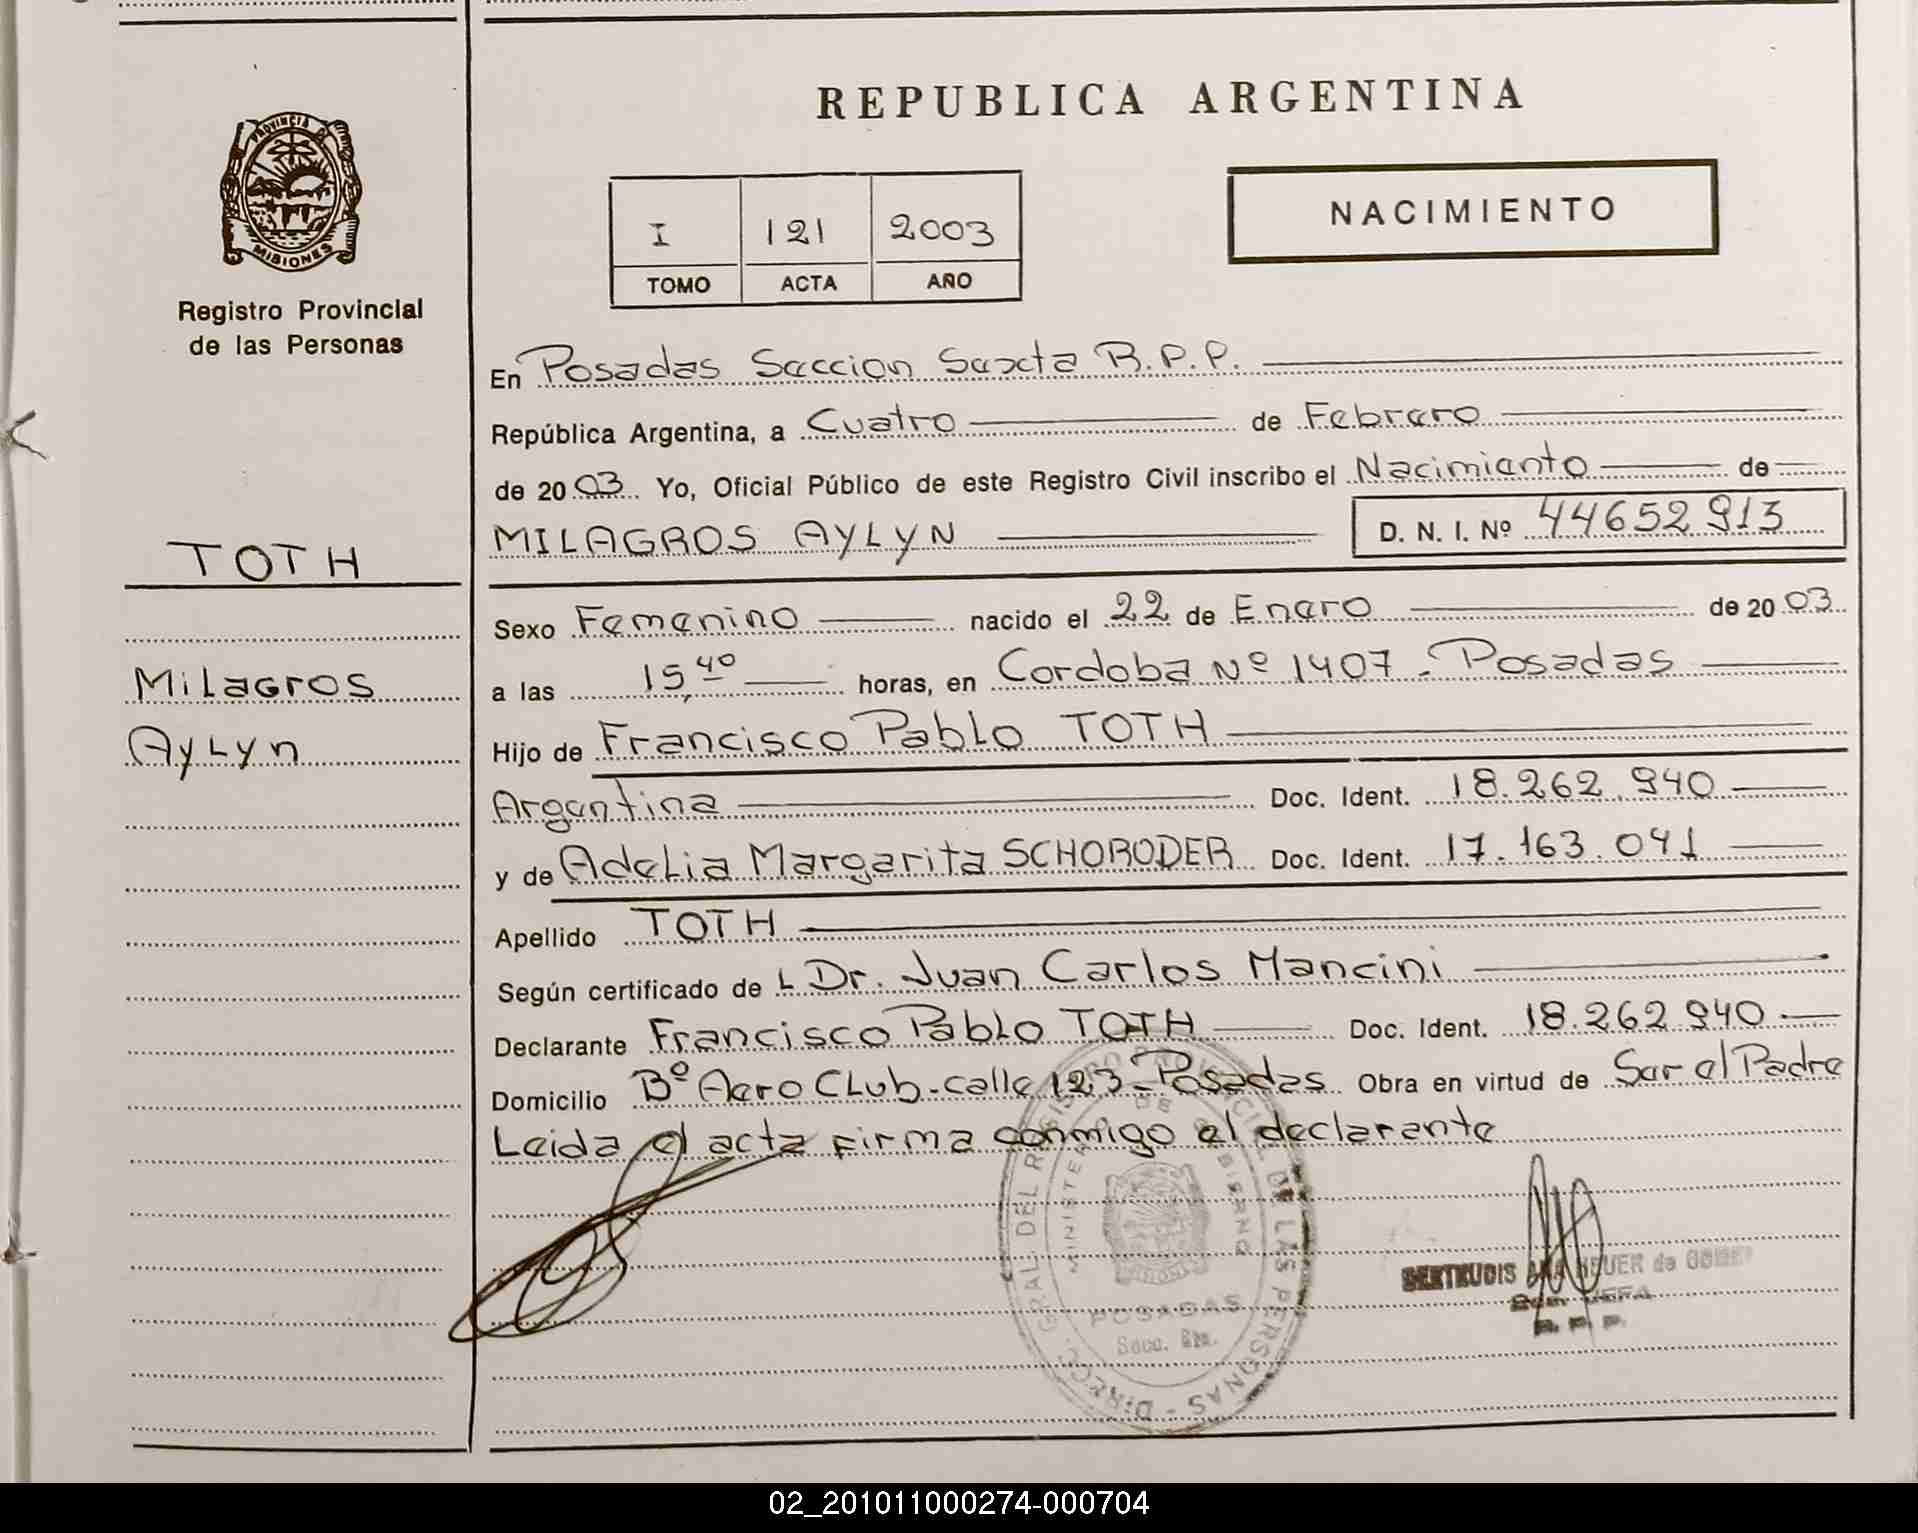 REPUBLICA ARGENTINA
PROVINCIA D
MISIONES
Registro Provincial
de las Personas
I 121 2003
TOMO ACTA AÑO
NACIMIENTO
En Posadas Seccion Sexta R.P.P.
República Argentina, a Cuatro de Febrero
de 2003 Yo, Oficial Público de este Registro Civil inscribo el Nacimiento de
MILAGROS AYLYN D. N. I. Nº 44652913
TOTH
Milagros
Aylyn
Sexo Femenino nacido el 22 de Enero de 2003
a las 15,40 horas, en Cordoba Nº 1407 - Posadas
Hijo de Francisco Pablo TOTH
Argentina Doc. Ident. 18.262.940
y de Adelia Margarita SCHORODER Doc. Ident. 17.163.041
Apellido TOTH
Según certificado de L Dr. Juan Carlos Mancini
Declarante Francisco Pablo TOTH Doc. Ident. 18.262.940
Domicilio Bº Aero CLub - calle 123 - Posadas Obra en virtud de Ser el Padre
Leida el acta firma conmigo el declarante
DIRECC. GRAL. DEL REGISTRO PROVINCIAL DE LAS PERSONAS -
MINISTERIO DE GOBIERNO
POSADAS
Secc. 6ta.
GERTRUDIS ANA HEUER de
R. P. P.
02_201011000274-000704